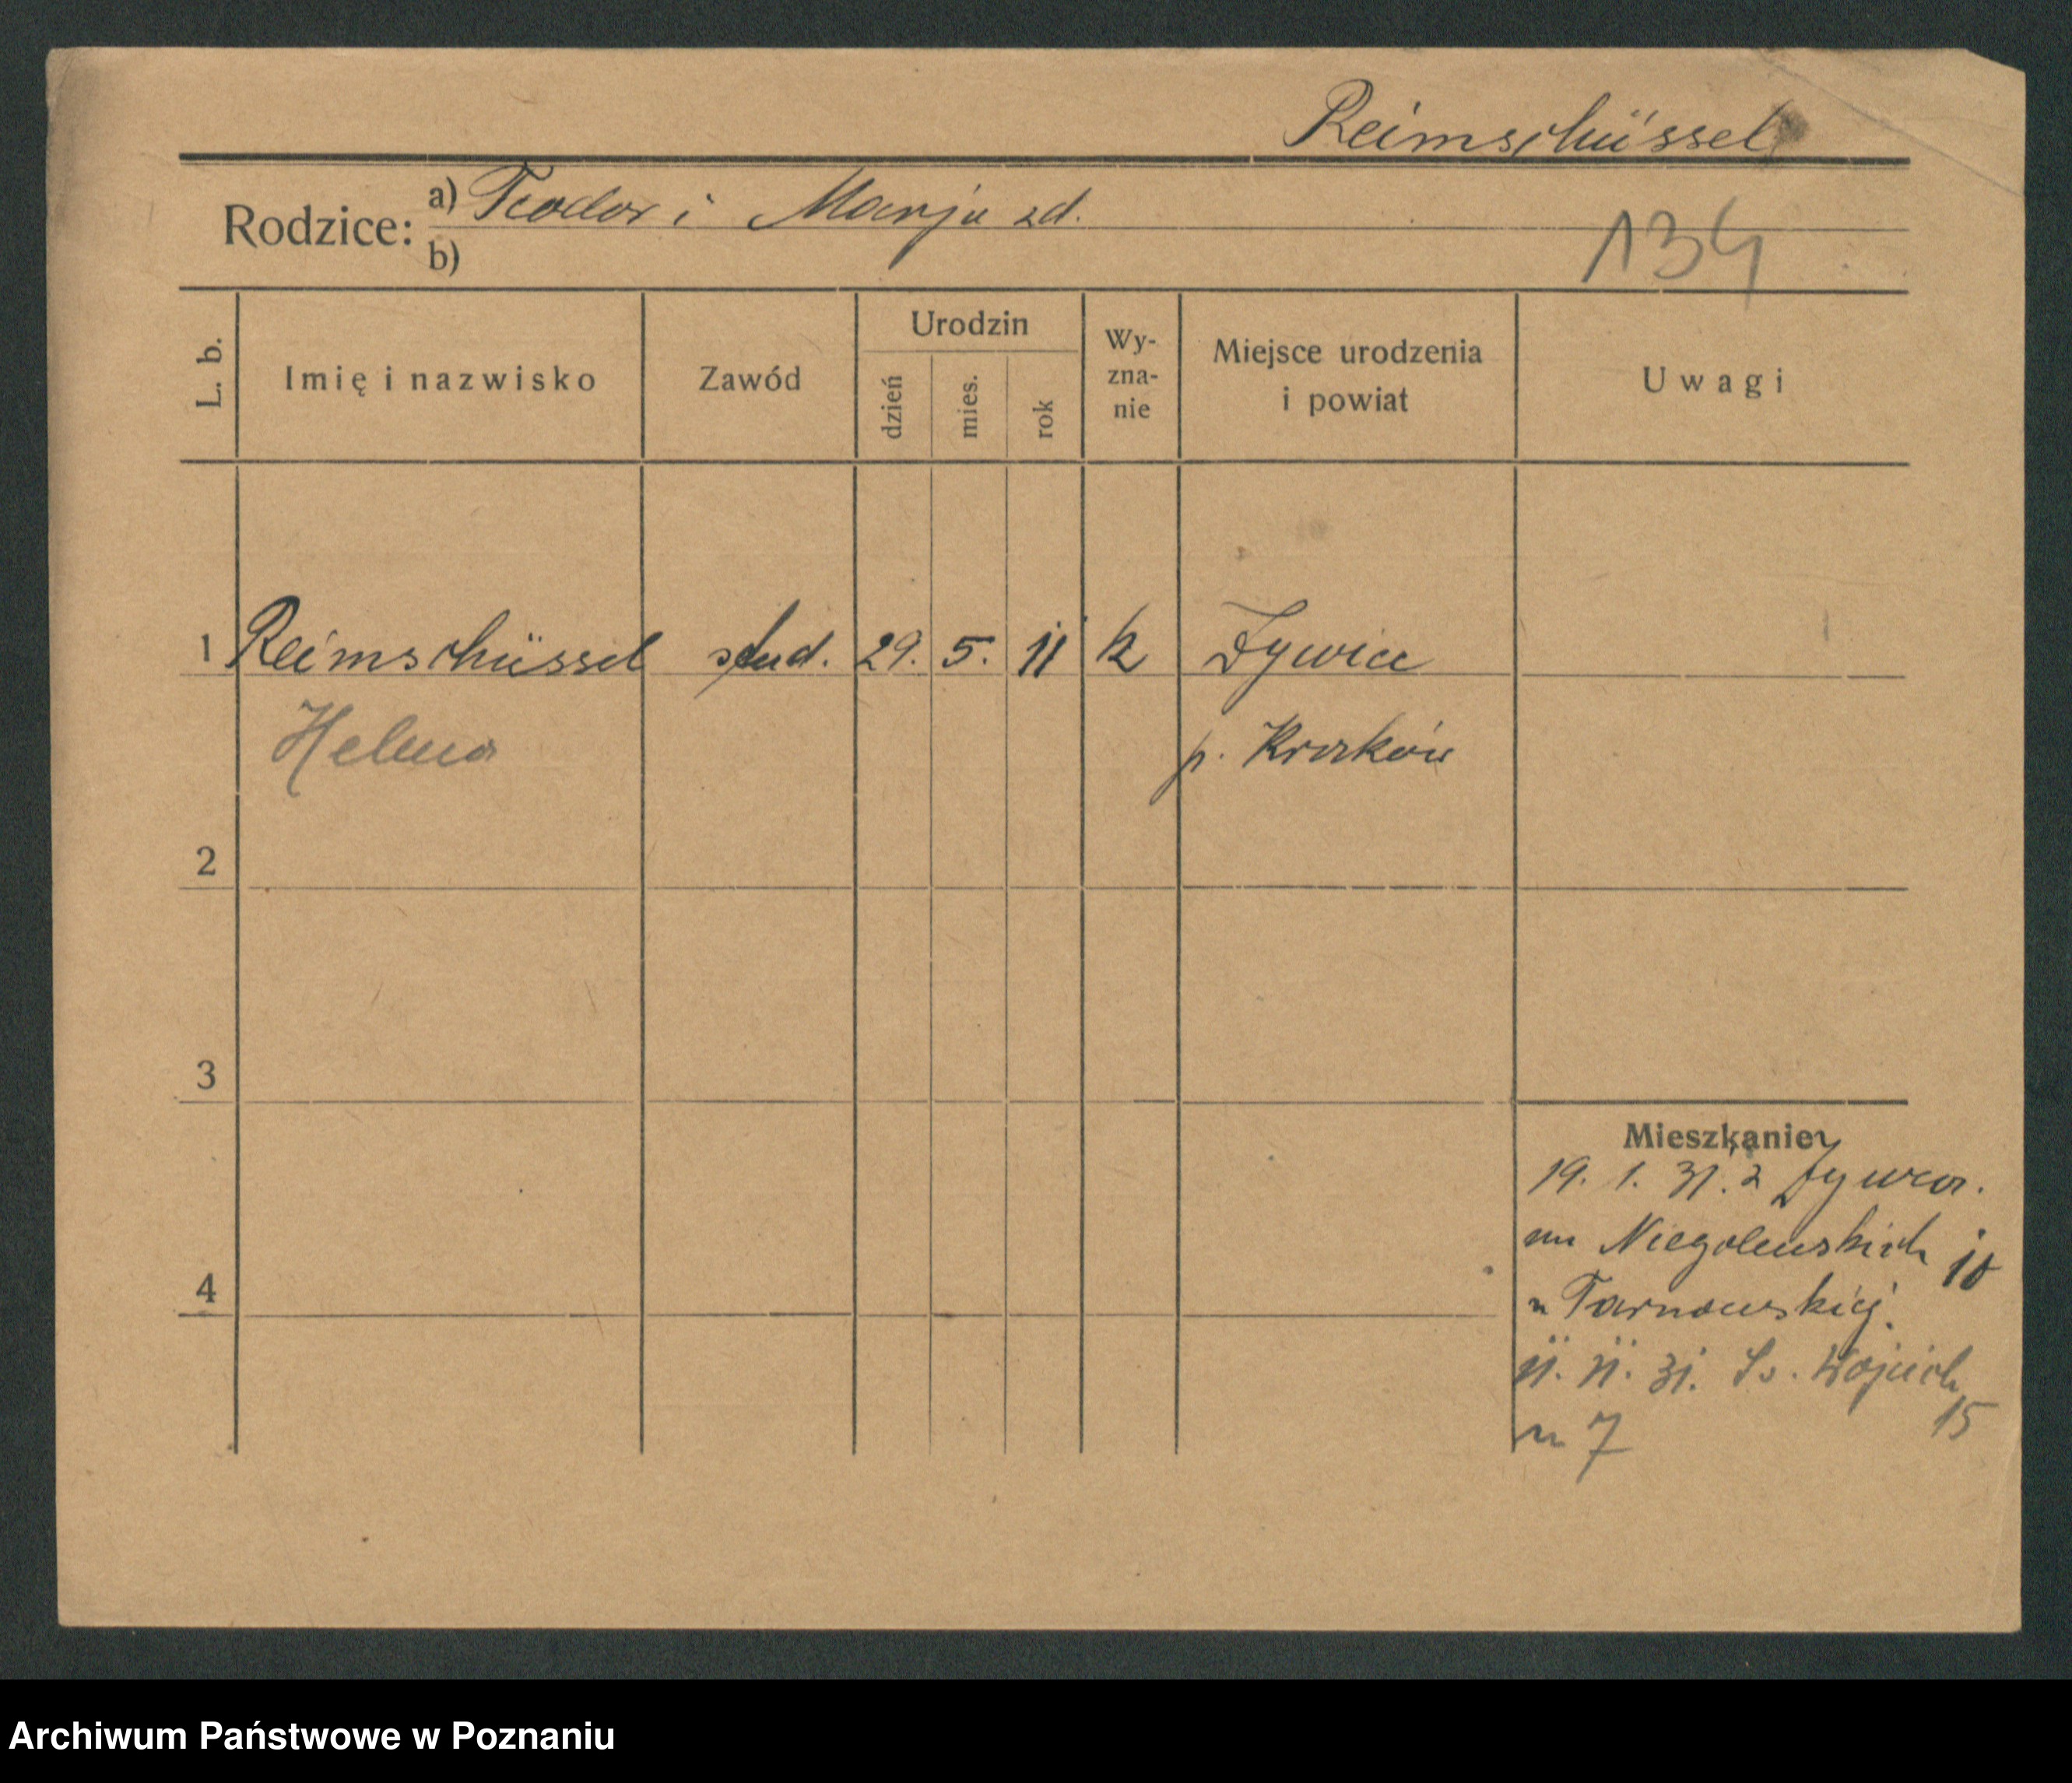 Reimschüssel
Rodzice: a) Teodor i Marja zd.
b)
134
L. b.
Imię i nazwisko
Zawód
Urodzin
dzień
mies.
rok
Wy-
zna-
nie
Miejsce urodzenia
i powiat
Uwagi
1 Reimschüssel stud. 29. 5. 11 k Żywiec
Helena p. Kraków
2
3
4
Mieszkanie
19. 1. 31. z Żywca.
Niegolewskich 10
u Tarnowskiej.
11. 11. 31. Św. Wojciech
15
m 7
Archiwum Państwowe w Poznaniu